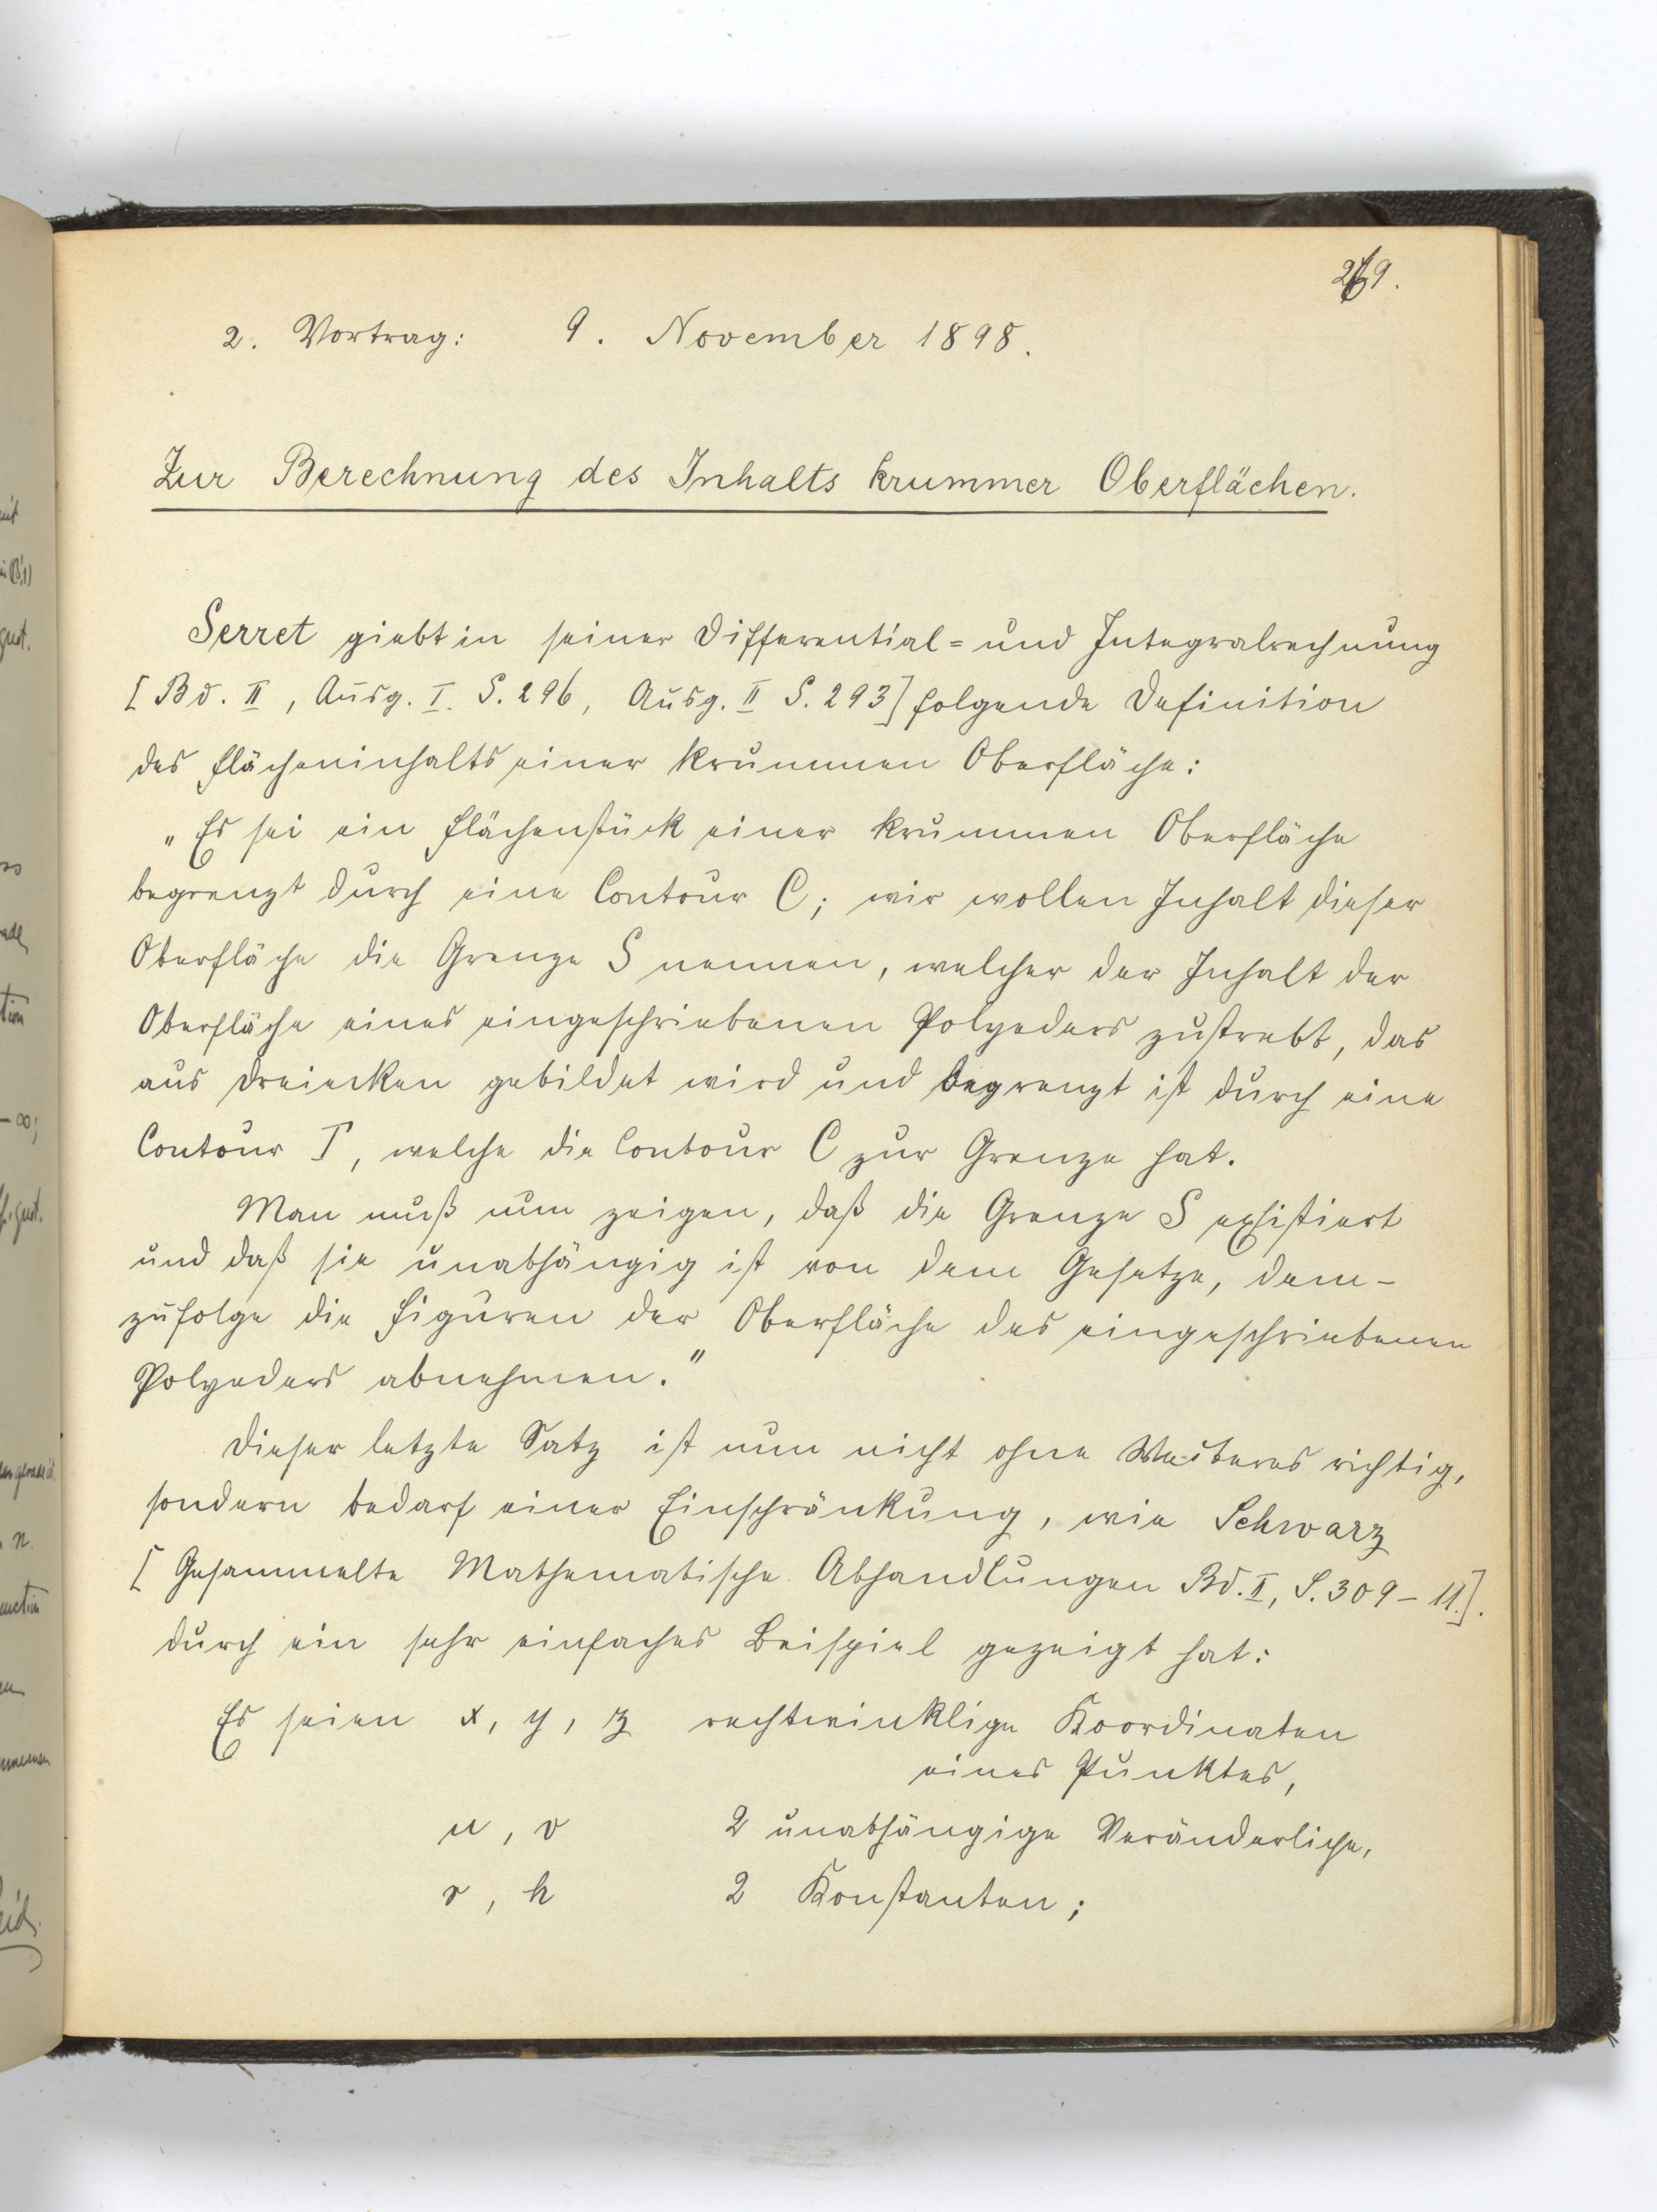 269.
2. Vortrag: 9. November 1898.
Zur Berechnung des Inhalts krummer Oberflächen.
Serret giebt in seiner Differential= und Integralrechnung
[Bd. II, Ausg. I. S. 296, Ausg. II S. 293] folgende Definition
des Flächeninhalts einer krummen Oberfläche:
„Es sei ein Flächenstück einer krummen Oberfläche
begrenzt durch eine Contour C; wir wollen Inhalt dieser
Oberfläche die Grenze S nennen, welcher der Inhalt der
Oberfläche eines eingeschriebenen Polyeders zustrebt, das
aus Dreiecken gebildet wird und begrenzt ist durch eine
Contour Γ, welche die Contour C zur Grenze hat.
Man muß nun zeigen, daß die Grenze S exsistiert
und daß sie unabhängig ist von dem Gesetze, dem-
zufolge die Figuren der Oberfläche des eingeschriebenen
Polyeders abnehmen."
Dieser letzte Satz ist nun nicht ohne Weiteres richtig,
sondern bedarf einer Einschränkung, wie Schwarz
[Gesammelte Mathematische Abhandlungen Bd. II, S. 309-11.].
durch ein sehr einfaches Beispiel gezeigt hat:
Es seien x, y, z rechtwinklige Koordinaten
eines Punktes,
u, v 2 unabhängige Veränderliche,
r, h 2 Konstanten;